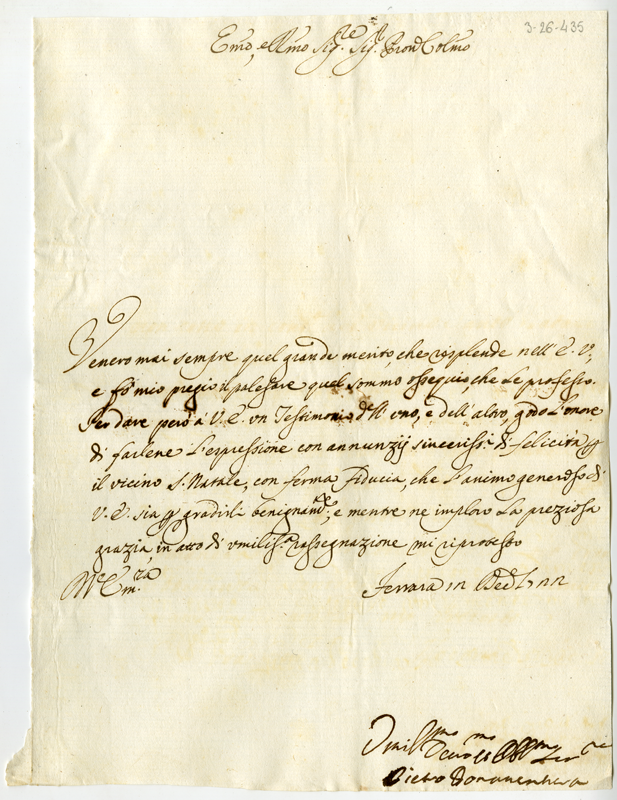 3-26-435
Emo, e Rmo Sig.re Sig.r Pron Colmo
Venero mai sempre quel grande merito, che risplende nell'E. V.,
e fò mio pregio il palesare quel sommo ossequio, che Le professo.
Per dare però à V. E. un Testimonio dell'uno, e dell'altro, godo l'onore
di farlene l'espressione con annunzij sincerissi. di felicità p
il vicino S. Natale, con ferma fiducia, che l'animo generoso di
V. E. sia p gradirli benignamte; e mentre ne imploro La preziosa
grazia, in atto di umilissa. rassegnazione mi riprotesto
Ferrara in
Umilmo Devmo Obblmo Serre
Pietro